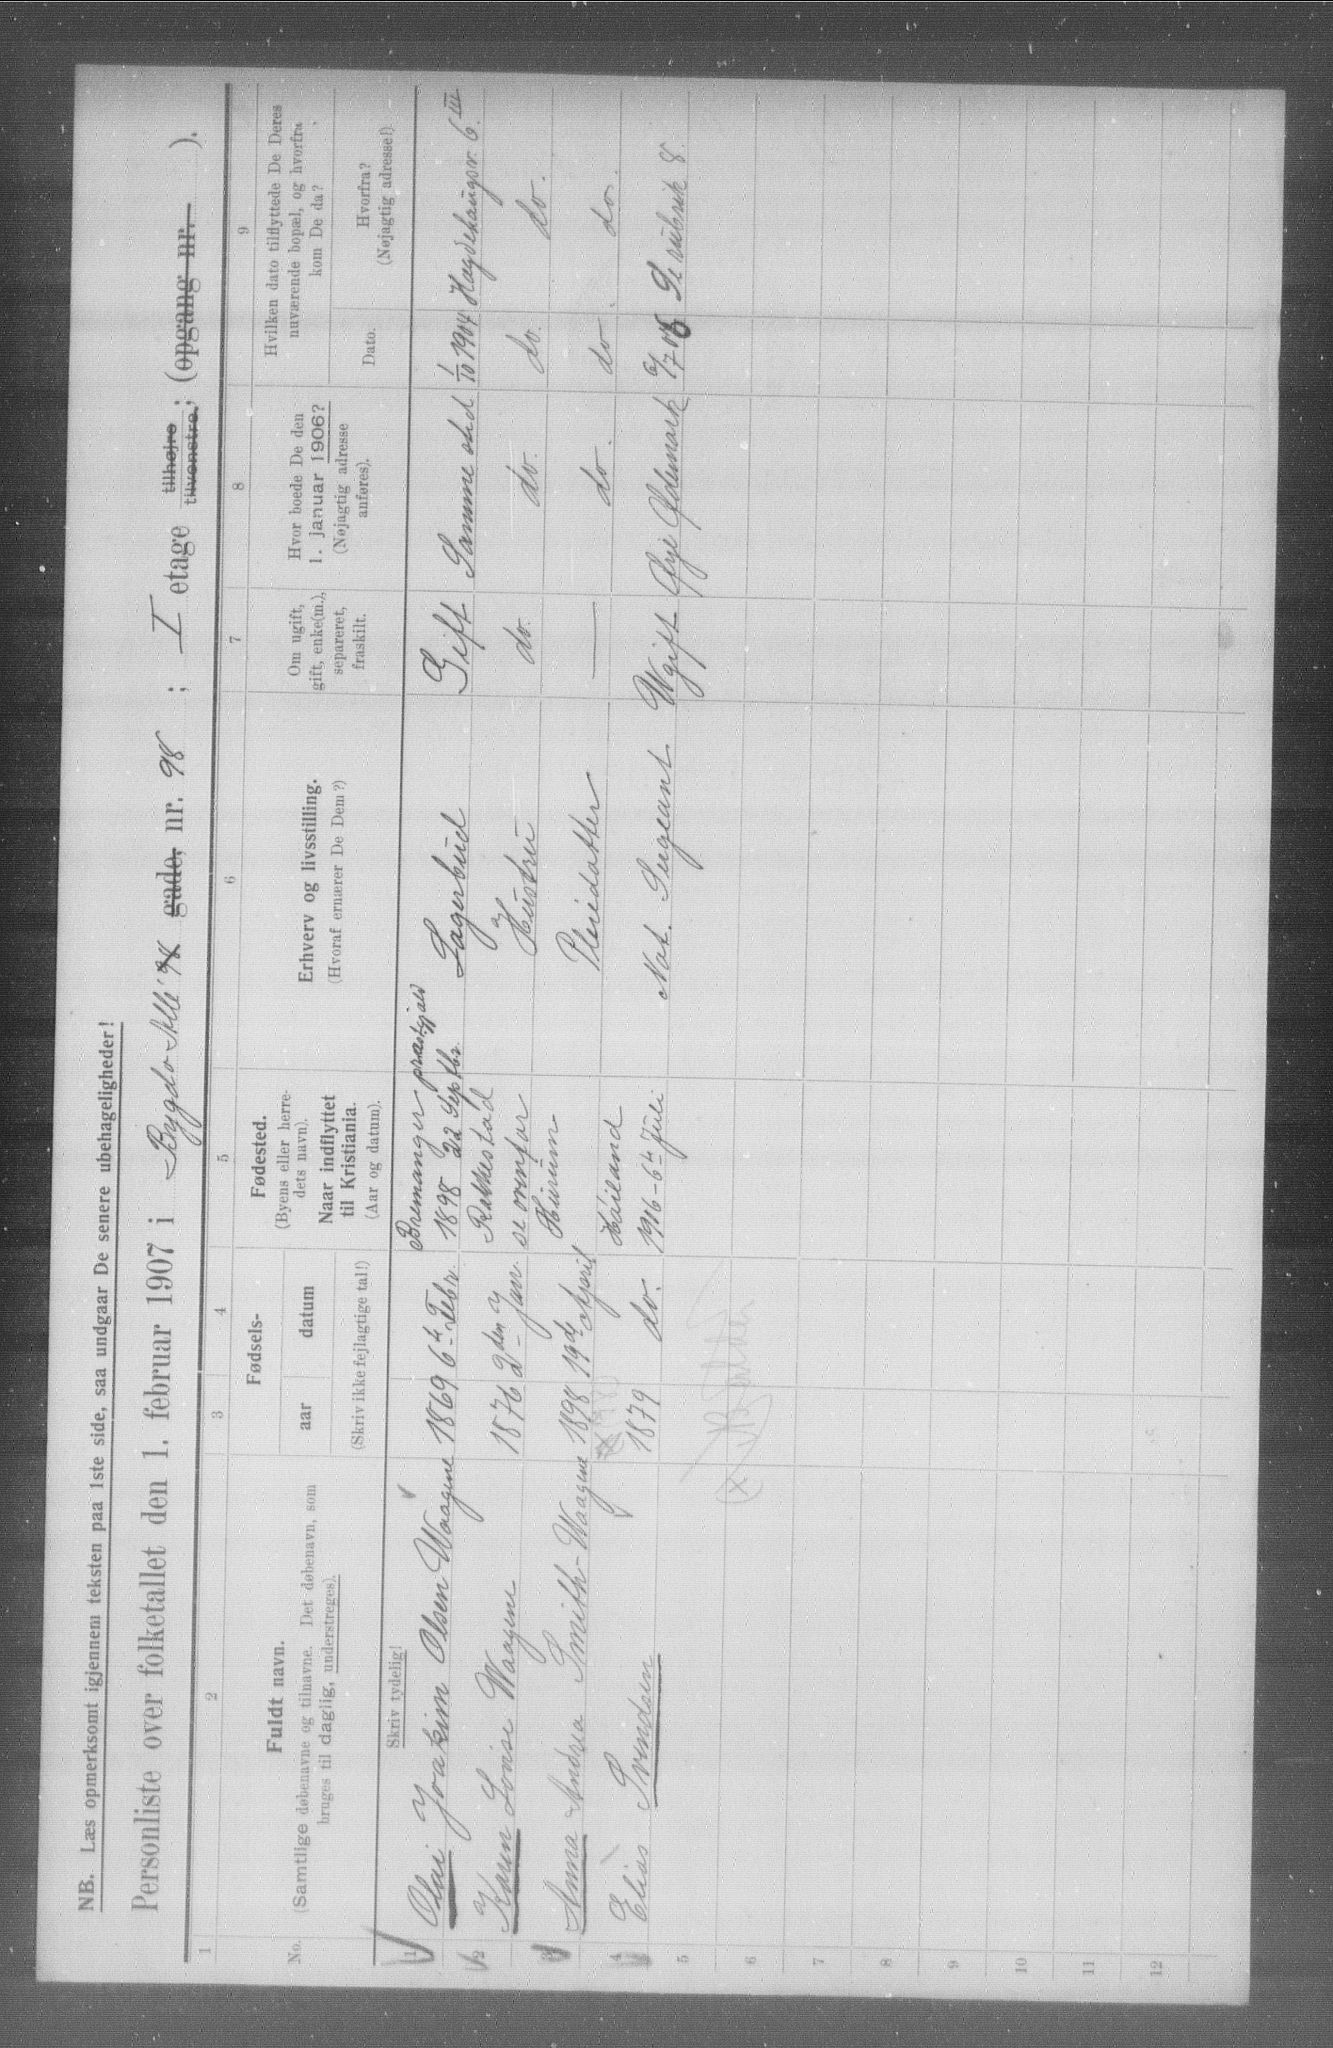 NB. Læs opmerksomt igjennem teksten paa 1ste side, saa undgaar De senere ubehageligheder!
Personliste over folketallet den 1. februar 1907 i Bygdø Allé 98 gade, nr. 98 ; I etage tilhøjre tilvenstre; (opgang nr. ).
1 2 3 4 5 6 7 8 9
No.
Fuldt navn.
(Samtlige døbenavne og tilnavne. Det døbenavn, som
bruges til daglig, understreges).
Fødsels-
aar datum
(Skriv ikke fejlagtige tal!)
Fødested.
(Byens eller herre-
dets navn).
Naar indflyttet
til Kristiania.
(Aar og datum).
Erhverv og livsstilling.
(Hvoraf ernærer De Dem?)
Om ugift,
gift, enke(m.),
separeret,
fraskilt.
Hvor boede De den
1. januar 1906?
(Nøjagtig adresse
anføres).
Hvilken dato tilflyttede De Deres
nuværende bopæl, og hvorfra
kom De da?
Dato.
Hvorfra?
(Nøjagtig adresse!)
Skriv tydelig!
Bremanger præstegjæld
1 Olai Joakim Olsen Waagene 1869 6te Febr. 1898 22 Septbr. Lagerbud Gift Samme sted 1/10 1904 Hegdehaugsv. 6 III
Rakkestad
2 Karen Lovise Waagene 1876 2den Jan. se ovenfor Hustru do. do. do. do.
Hurum
3 Anna Andrea Smith-Waagene 1898 19de April Pleiedatter — do. do. do.
Høiland
4 Elias Svendsen 1879 do. 1906-6te Juli Nat. Sergeant Ugift Øije 6/7 06 Se rubrik 8.
5
6
7
8
9
10
11
12